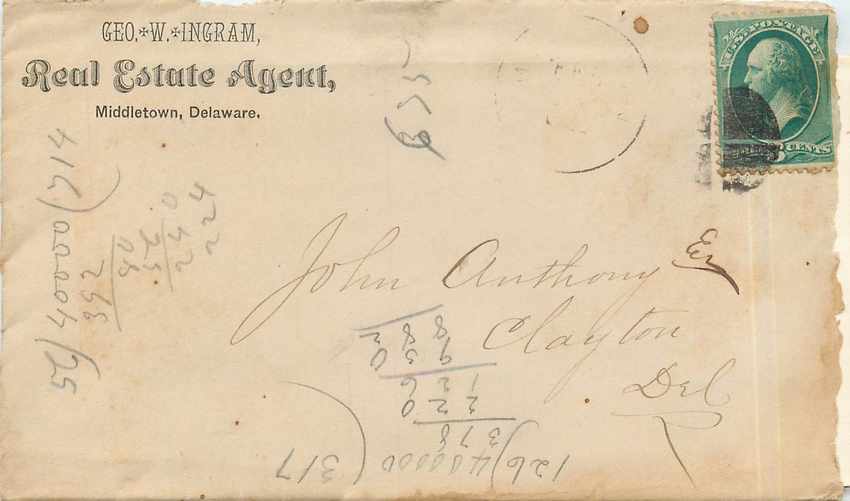 GEO. W. INGRAM,
Real Estate Agent,
Middletown, Delaware.
U.S. POSTAGE
CENTS
John Anthony
Clayton
Del
675
56)40000(714
392
80
56
240
224
126)400000(317
378
220
126